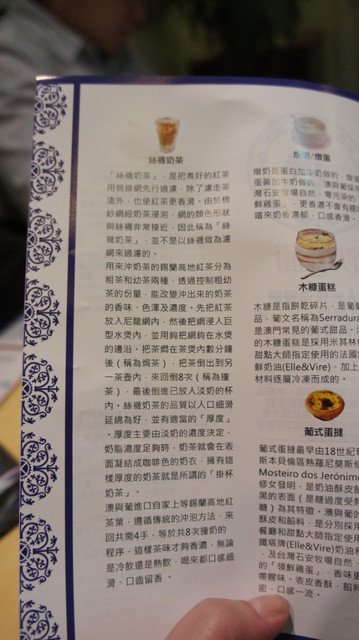 絲襪奶茶
「絲襪奶茶」，是把煮好的紅茶
用棉線網先行過濾，除了濾走茶
渣外，也使紅茶更香滑。由於棉
紗網經奶茶浸泡，網的顏色形狀
與絲襪非常接近，因此稱為「絲
襪奶茶」，並不是以絲襪做為濾
網來過濾的。
用來沖奶茶的錫蘭高地紅茶分為
粗茶和幼茶兩種，透過控制粗幼
茶的份量，能改變沖出來的奶茶
的香味、色澤及濃度。先把紅茶
放入尼龍網內，然後把網浸入巨
型水煲內，並用鉤把網鉤在水煲
的邊沿。把茶燜在茶煲內數分鐘
後（稱為焗茶），把茶倒出到另
一茶壺內，來回倒8次（稱為撞
茶），最後倒進已放入淡奶的杯
內。絲襪奶茶的品質以入口細滑
延綿為好，並有適當的「厚度」
。厚度主要由淡奶的濃度決定，
奶脂濃度足夠時，奶茶就會在表
面凝結成咖啡色的奶衣，擁有這
樣厚度的奶茶就是所謂的「掛杯
奶茶」。
澳與葡進口自家上等錫蘭高地紅
茶葉，遵循傳統的沖泡方法，來
回共需4手，等於共8次撞奶的
程序，這樣茶味才夠香濃，無論
是冷飲還是熱飲，喝來都口感細
滑、口齒留香。
燉奶/燉蛋
燉奶是蛋白加牛奶做的，燉蛋
蛋黃加牛奶做的。澳與葡採
灣石安牧場自然、零污染的「
鮮雞蛋」，更香濃不會有腥
嚐來奶香濃郁，口感香滑。
木糠蛋糕
木糠是指餅乾碎片，是葡萄
品，葡文名稱為Serradura
是澳門常見的葡式甜品。澳
的木糠蛋糕是採用米其林
甜點大師指定使用的法國
鮮奶油(Elle&Vire)，加上
材料逐層冷凍而成的。
葡式蛋撻
葡式蛋撻最早由18世紀
斯本貝倫區熱羅尼莫斯
Mosteiro dos Jerónimo
修女發明，是奶油酥皮
黑的表面（是糖過度受熱
糖）為其特徵。澳與葡的
酥皮和餡料，是分別採用
餐廳和甜點大師指定使用
鐵塔牌(Elle&Vire)奶油和
，及台灣石安牧場自然、
的「領鮮雞蛋」，香味更
帶腥味，表皮香酥，餡料
密，口感一流。